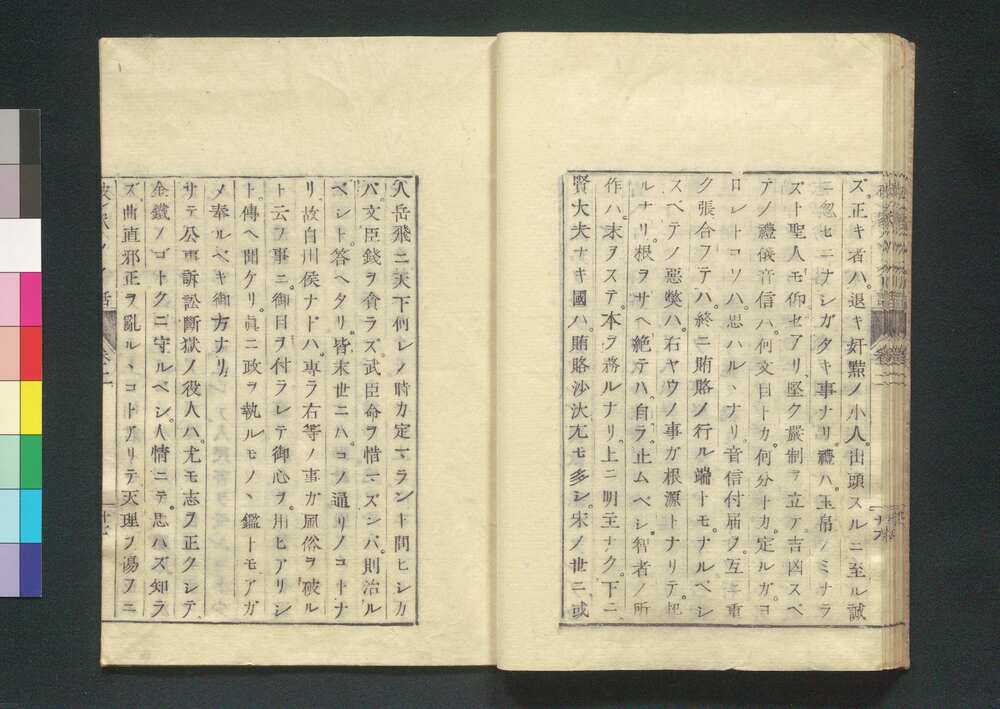 ズ。正キ者ハ。退キ奸黠ノ小人出頭スルニ至ル誠
ニ忽セニナシガタキ事ナリ。禮ハ。玉帛ノミナラ
ズト聖人モ仰セアリ。堅ク嚴制ヲ立テ吉凶スベ
テノ禮儀音信ハ。何文目トカ。何分トカ。定ルガ。ヨ
ロシトコソハ。思ハルヽナリ。音信付届ヲ。互ニ重
ク張合フテハ。終ニ賄賂ノ行ル端トモ。ナルベシ
スベテノ惡獘ハ。右ヤウノ事ガ根源トナリテ。起
ルナリ。根ヲサヘ絶テハ。自ラ。止ムベシ。智者ノ所
作ハ。末ヲステ。本ヲ務ルナリ。上ニ明主ナク。下ニ
賢大夫ナキ國ハ。賄賂沙汰尤モ多シ。宋ノ世ニ或
人岳飛ニ天下何レノ時カ定マラント問ヒシカ
バ。文臣錢ヲ貪ラズ。武臣命ヲ惜マズンバ。則治ル
ベシト。答ヘタリ。皆末世ニハ。コノ通リノコトナ
リ。故白川侯ナドハ。專ラ右等ノ事ガ風俗ヲ破ル
ト云フ事ニ。御目ヲ付ラレテ御心ヲ。用ヒアリシ
ト。傳ヘ聞ケリ。眞ニ政ヲ執ルモノヽ鑑トモアガ
メ奉ルベキ御方ナリ。
サテ公事訴訟斷獄ノ役人ハ。尤モ志ヲ正クシテ
金鐵ノゴトクニ守ルベシ。人情ニテ。思ハズ知ラ
ズ。曲直邪正ヲ亂ルヽコトアリテ天理ヲ湯ヲニ